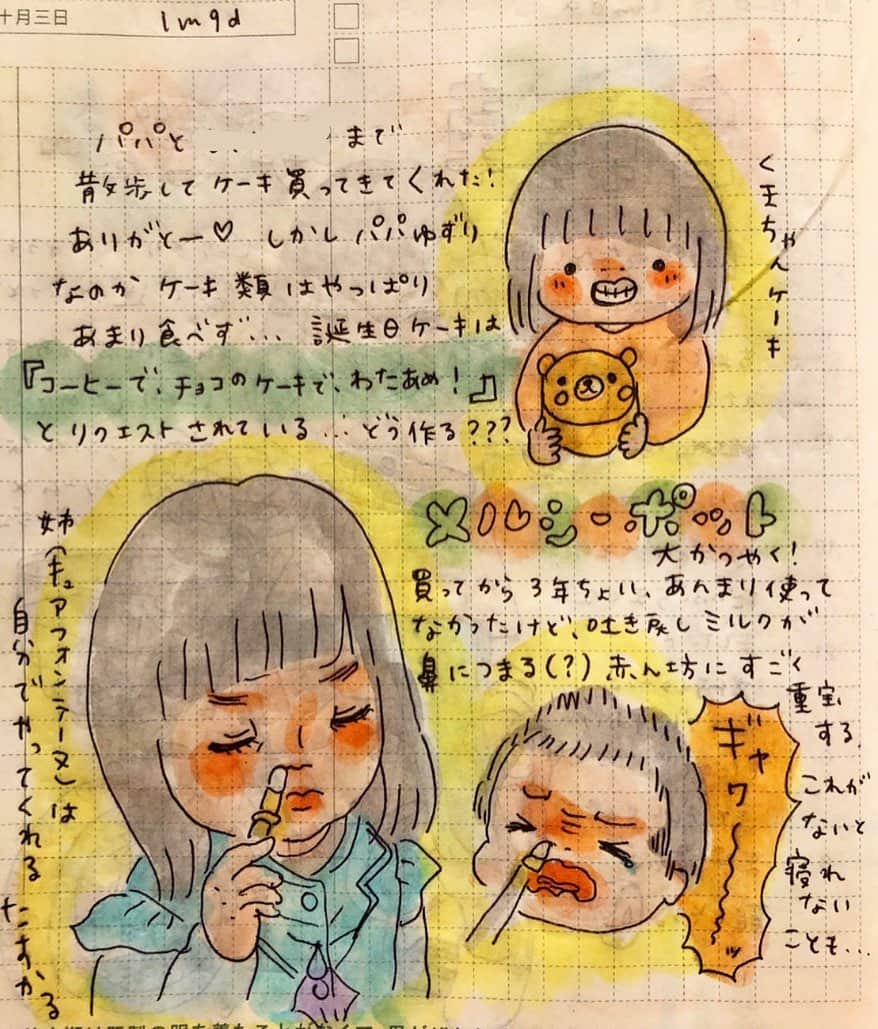 十月三日
1m9d
パパと まで
散歩して ケーキ買ってきてくれた!
ありがとー♡ しかし パパゆずり
なのか ケーキ類はやっぱり
あまり食べず... 誕生日ケーキは
『コーヒーで、チョコのケーキで、わたあめ!』
とリクエストされている... どう作る???
くまちゃんケーキ
メルシーポット
大かつやく!
買ってから3年ちょい、あんまり使って
なかったけど、吐き戻しミルクが
鼻につまる(?)赤ん坊にすごく
重宝
する。
これが
ないと
寝れ
ない
ことも...
ギャワ〜〜ッ
姉(キュアフォンテーヌ)は
自分でやってくれる
たすかる